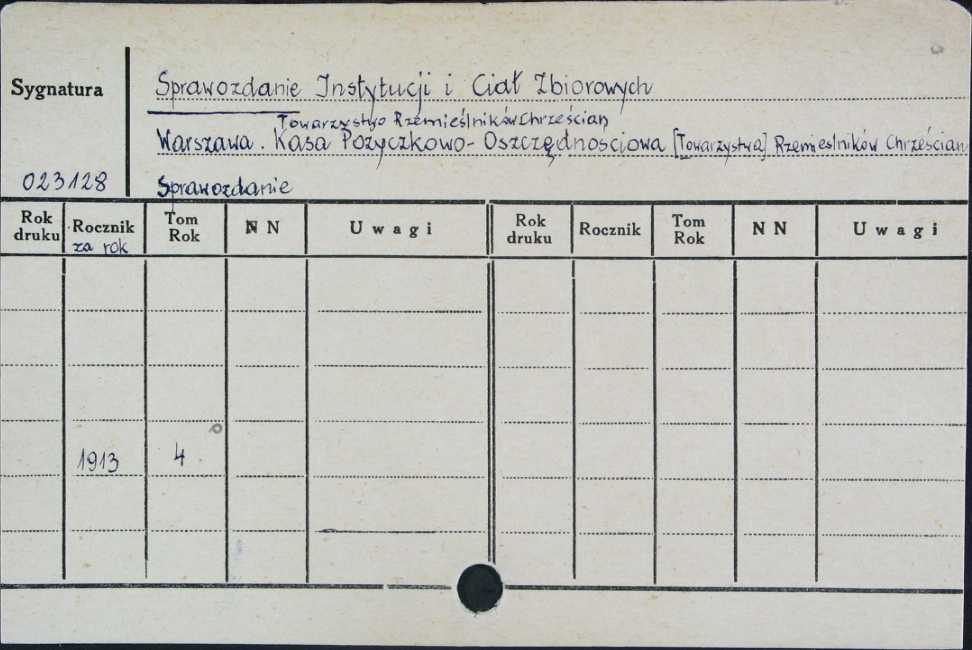 Sprawozdanie Instytucji i Ciał Zbiorowych
Sygnatura
Towarzystwo Rzemieślników Chrześcian
Warszawa. Kasa Pożyczkowo-Oszczędnościowa [Towarzystwa] Rzemieślników Chrześcian
023128 Sprawozdanie
Rok druku Rocznik za rok Tom Rok NN Uwagi Rok druku Rocznik Tom Rok NN Uwagi
1913 4